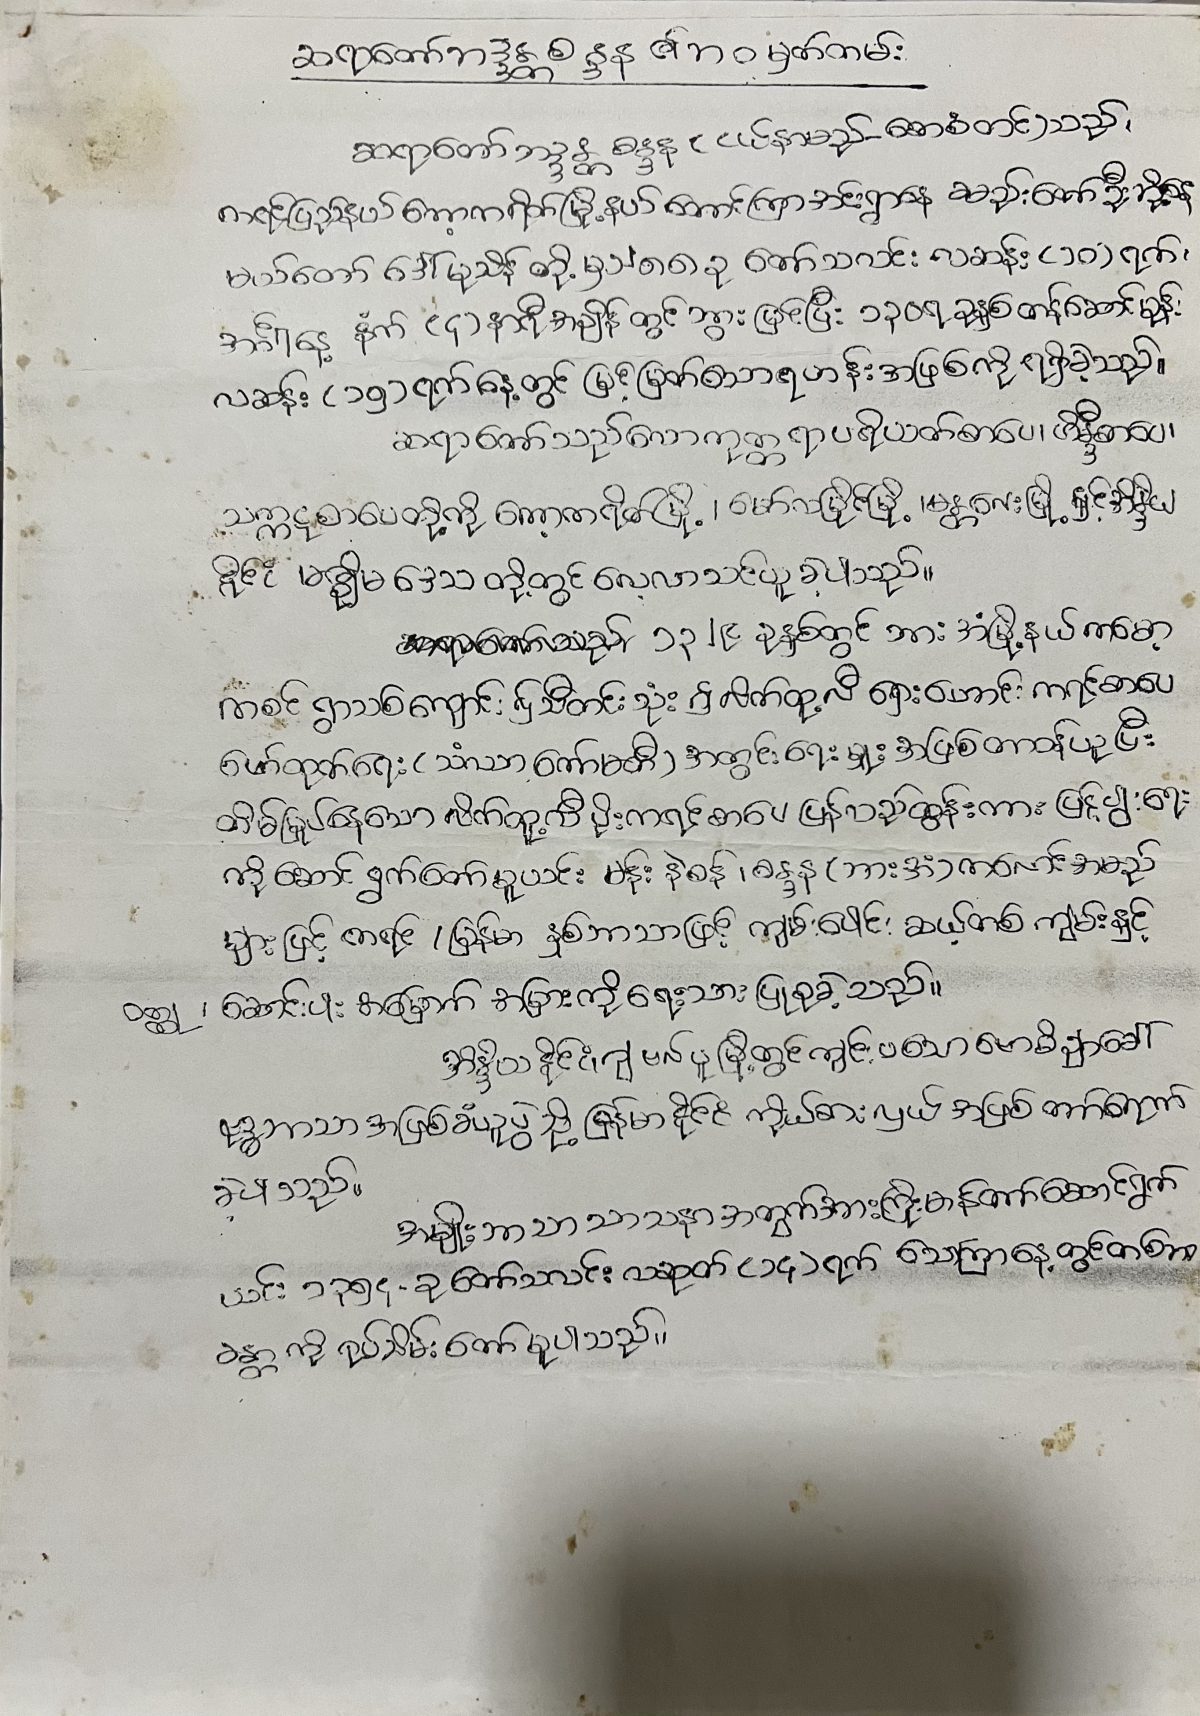 ဆရာတော်ဘဒ္ဒန္တစန္ဒန ၏ဘဝမှတ်တမ်း
ဆရာတော်ဘဒ္ဒန္တ စန္ဒန (ငယ်နာမည်-စောစံတင်)သည်၊
ကရင်ပြည်နယ် ကော့ကရိတ်မြို့နယ် ကောင်းကြာအင်းရွာနေ ခမည်းတော်ဦး
မယ်တော် ဒေါ်မုသိန် တို့မှ ခု တော်သလင်း လဆန်း (၁၀) ရက်၊
အင်္ဂါနေ့ နံက် (၄) နာရီအချိန်တွင် ဘွားမြင်ပြီး ၁၃၀၇ ခုနှစ်တန်ဆောင်မုန်း
လဆန်း (၁၅) ရက်နေ့တွင် မြင့်မြတ်သောရဟန်းအဖြစ်ကို ရရှိခဲ့သည်။
ဆရာတော်သည်လောကုတ္တရာပရိယတ်စာပေ၊ ဟိန္ဒီစာပေ၊
သက္ကဋစာပေတို့ကို ကော့ကရိတ်မြို့၊ မော်လမြိုင်မြို့၊ မန္တလေးမြို့နှင့်အိန္ဒိယ
နိုင်ငံ မဇ္ဈိမဒေသ တို့တွင် လေ့လာသင်ယူခဲ့ပါသည်။
ဆရာတော်သည် ၁၃၂၄ ခုနှစ်တွင် ဘားအံမြို့နယ် ကမော့
ကစင် ရွာသစ်ကျောင်း၌ သီတင်းသုံး၍ လိက်ထူ့လီ ရှေးဟောင်း ကရင်စာပေ
ဖော်ထုတ်ရေး (သံဃာ့ကော်မတီ) အတွင်းရေးမှူးအဖြစ်တာဝန်ယူပြီး
တိမ်မြုပ်နေသော လိက်ထူ့လီ ပိုးကရင်စာပေ ပြန်လည်ထွန်းကား ပြန့်ပွါးရေး
ကို ဆောင်ရွက်တော်မူယင်း မန်းနဲစန်၊ စန္ဒန (ဘားအံ) ကလောင်အမည်
များဖြင့် ကရင် / မြန်မာ နှစ်ဘာသာဖြင့် ကျမ်းပေါင်း ဆယ့်တစ် ကျမ်းနှင့်
ဝတ္ထု၊ ဆောင်းပါး အမြောက် အမြားကိုရေးသားပြုစုခဲ့သည်။
အိန္ဒိယနိုင်ငံ၊ မြို့တွင်ကျင်းပသော
ဗုဒ္ဓဘာသာအဖြစ်ခံယူပွဲသို့ မြန်မာနိုင်ငံ ကိုယ်စားလှယ် အဖြစ် တက်ရောက်
ခဲ့ပါသည်။
အမျိုးဘာသာ သာသနာအတွက်အားကြိုးမာန်တက်ဆောင်ရွက်
ယင်း ၁၃၅၄-ခု တော်သလင်း လဆုတ် (၁၄) ရက် သောကြာနေ့တွင်တစ်ဘဝ
ခန္ဓာကို ရုပ်သိမ်းတော်မူပါသည်။